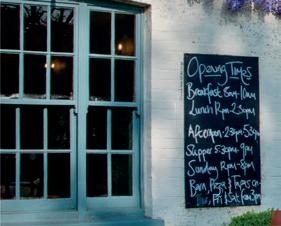 Opening Times
Breakfast 8am-10am
Lunch 12pm-2.30pm
Afternoon 2.30pm-5.30pm
Supper 5.30pm-9pm
Sunday 12pm-8pm
Barn, Pizza, & Tapas on
Fri & Sat from 3pm